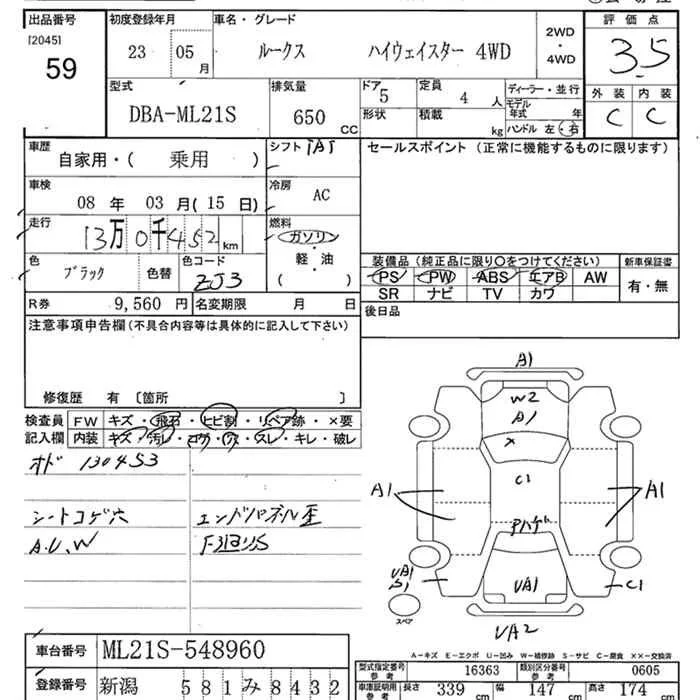 出品番号
[2045]
59
初度登録年月
23 05 月
車名・グレード
ルークス ハイウェイスター 4WD
2WD
・
4WD
評価点
3.5
外装 内装
C C
型式
DBA-ML21S
排気量
650 CC
ドア 5
形状
定員 4 人
積載 kg
ディーラー・並行
モデル
年式 年
ハンドル 左・右
車歴
自家用・( 乗用 )
シフト IAT
セールスポイント (正常に機能するものに限ります)
車検
08 年 03 月 (15 日)
冷房
AC
走行
13万0千452 km
燃料
ガソリン
軽・油
( )
色
ブラック
色替
色コード
ZJ3
装備品 (純正品に限り○をつけてください)
新車保証書
PS PW ABS エアB AW
SR ナビ TV カワ
有・無
R券 9,560 円
名変期限 月 日
後日品
注意事項申告欄 (不具合内容等は具体的に記入して下さい)
修復歴 有 〔箇所 〕
検査員
記入欄
FW キズ・飛石・ヒビ割・リペア跡・×要
内装 キズ・汚レ・コゲ・穴・スレ・キレ・破レ
オド 130453
シートコゲ穴
A.U.W
エンドパネル歪
A1
W2
A1
×
C1
A1
A1
Pハゲ
UA1
S1
UA1
C1
スペア
UA2
A-キズ E-エクボ U-凹み W-補修跡 S-サビ C-腐食 ××-交換済
車台番号 ML21S-548960
登録番号 新潟 581み8432
型式指定番号
参考
16363
類別区分番号
参考
0605
車庫証明用
参考
長さ 339 cm
幅 147 cm
高さ 174 cm